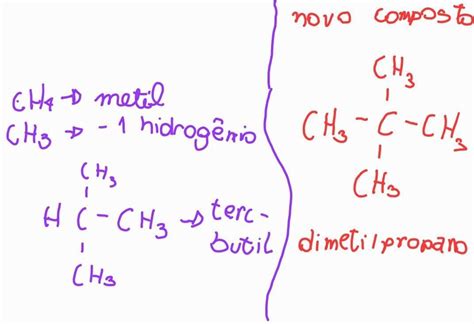 CH4 → metil
CH3 → -1 hidrogênio
CH3
H C - CH3 → terc-
butil
CH3
novo composto
CH3
CH3 - C - CH3
CH3
dimetilpropano